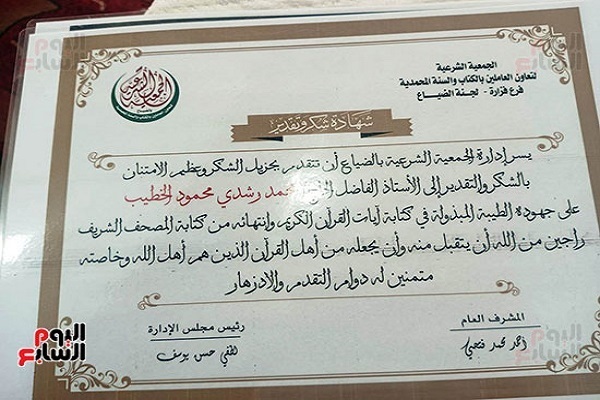 الجمعية الشرعية
لتعاون العاملين بالكتاب والسنة المحمدية
فرع فزارة - لجنة الضياع
شهادة شكر وتقدير
يسر إدارة الجمعية الشرعية بالضياع أن تتقدم بجزيل الشكر وعظيم الامتنان
بالشكر والتقدير إلى الأستاذ الفاضل محمد رشدي محمود الخطيب
على جهوده الطيبة المبذولة في كتابة آيات القرآن الكريم وانتهائه من كتابة المصحف الشريف
راجين من الله أن يتقبل منه وأن يجعله من أهل القرآن الذين هم أهل الله وخاصته
متمنين له دوام التقدم والازدهار
المشرف العام
رئيس مجلس الإدارة
أحمد محمد فتحي
لطفي حسن يوسف
اليوم السابع
اليوم السابع